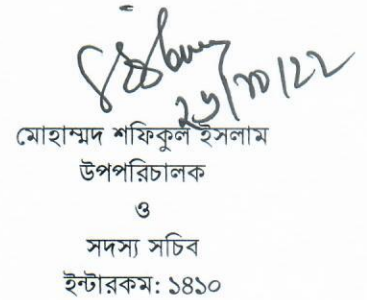 ২৬/১০/২২
মোহাম্মদ শফিকুল ইসলাম
উপপরিচালক
ও
সদস্য সচিব
ইন্টারকম: ১৪১০